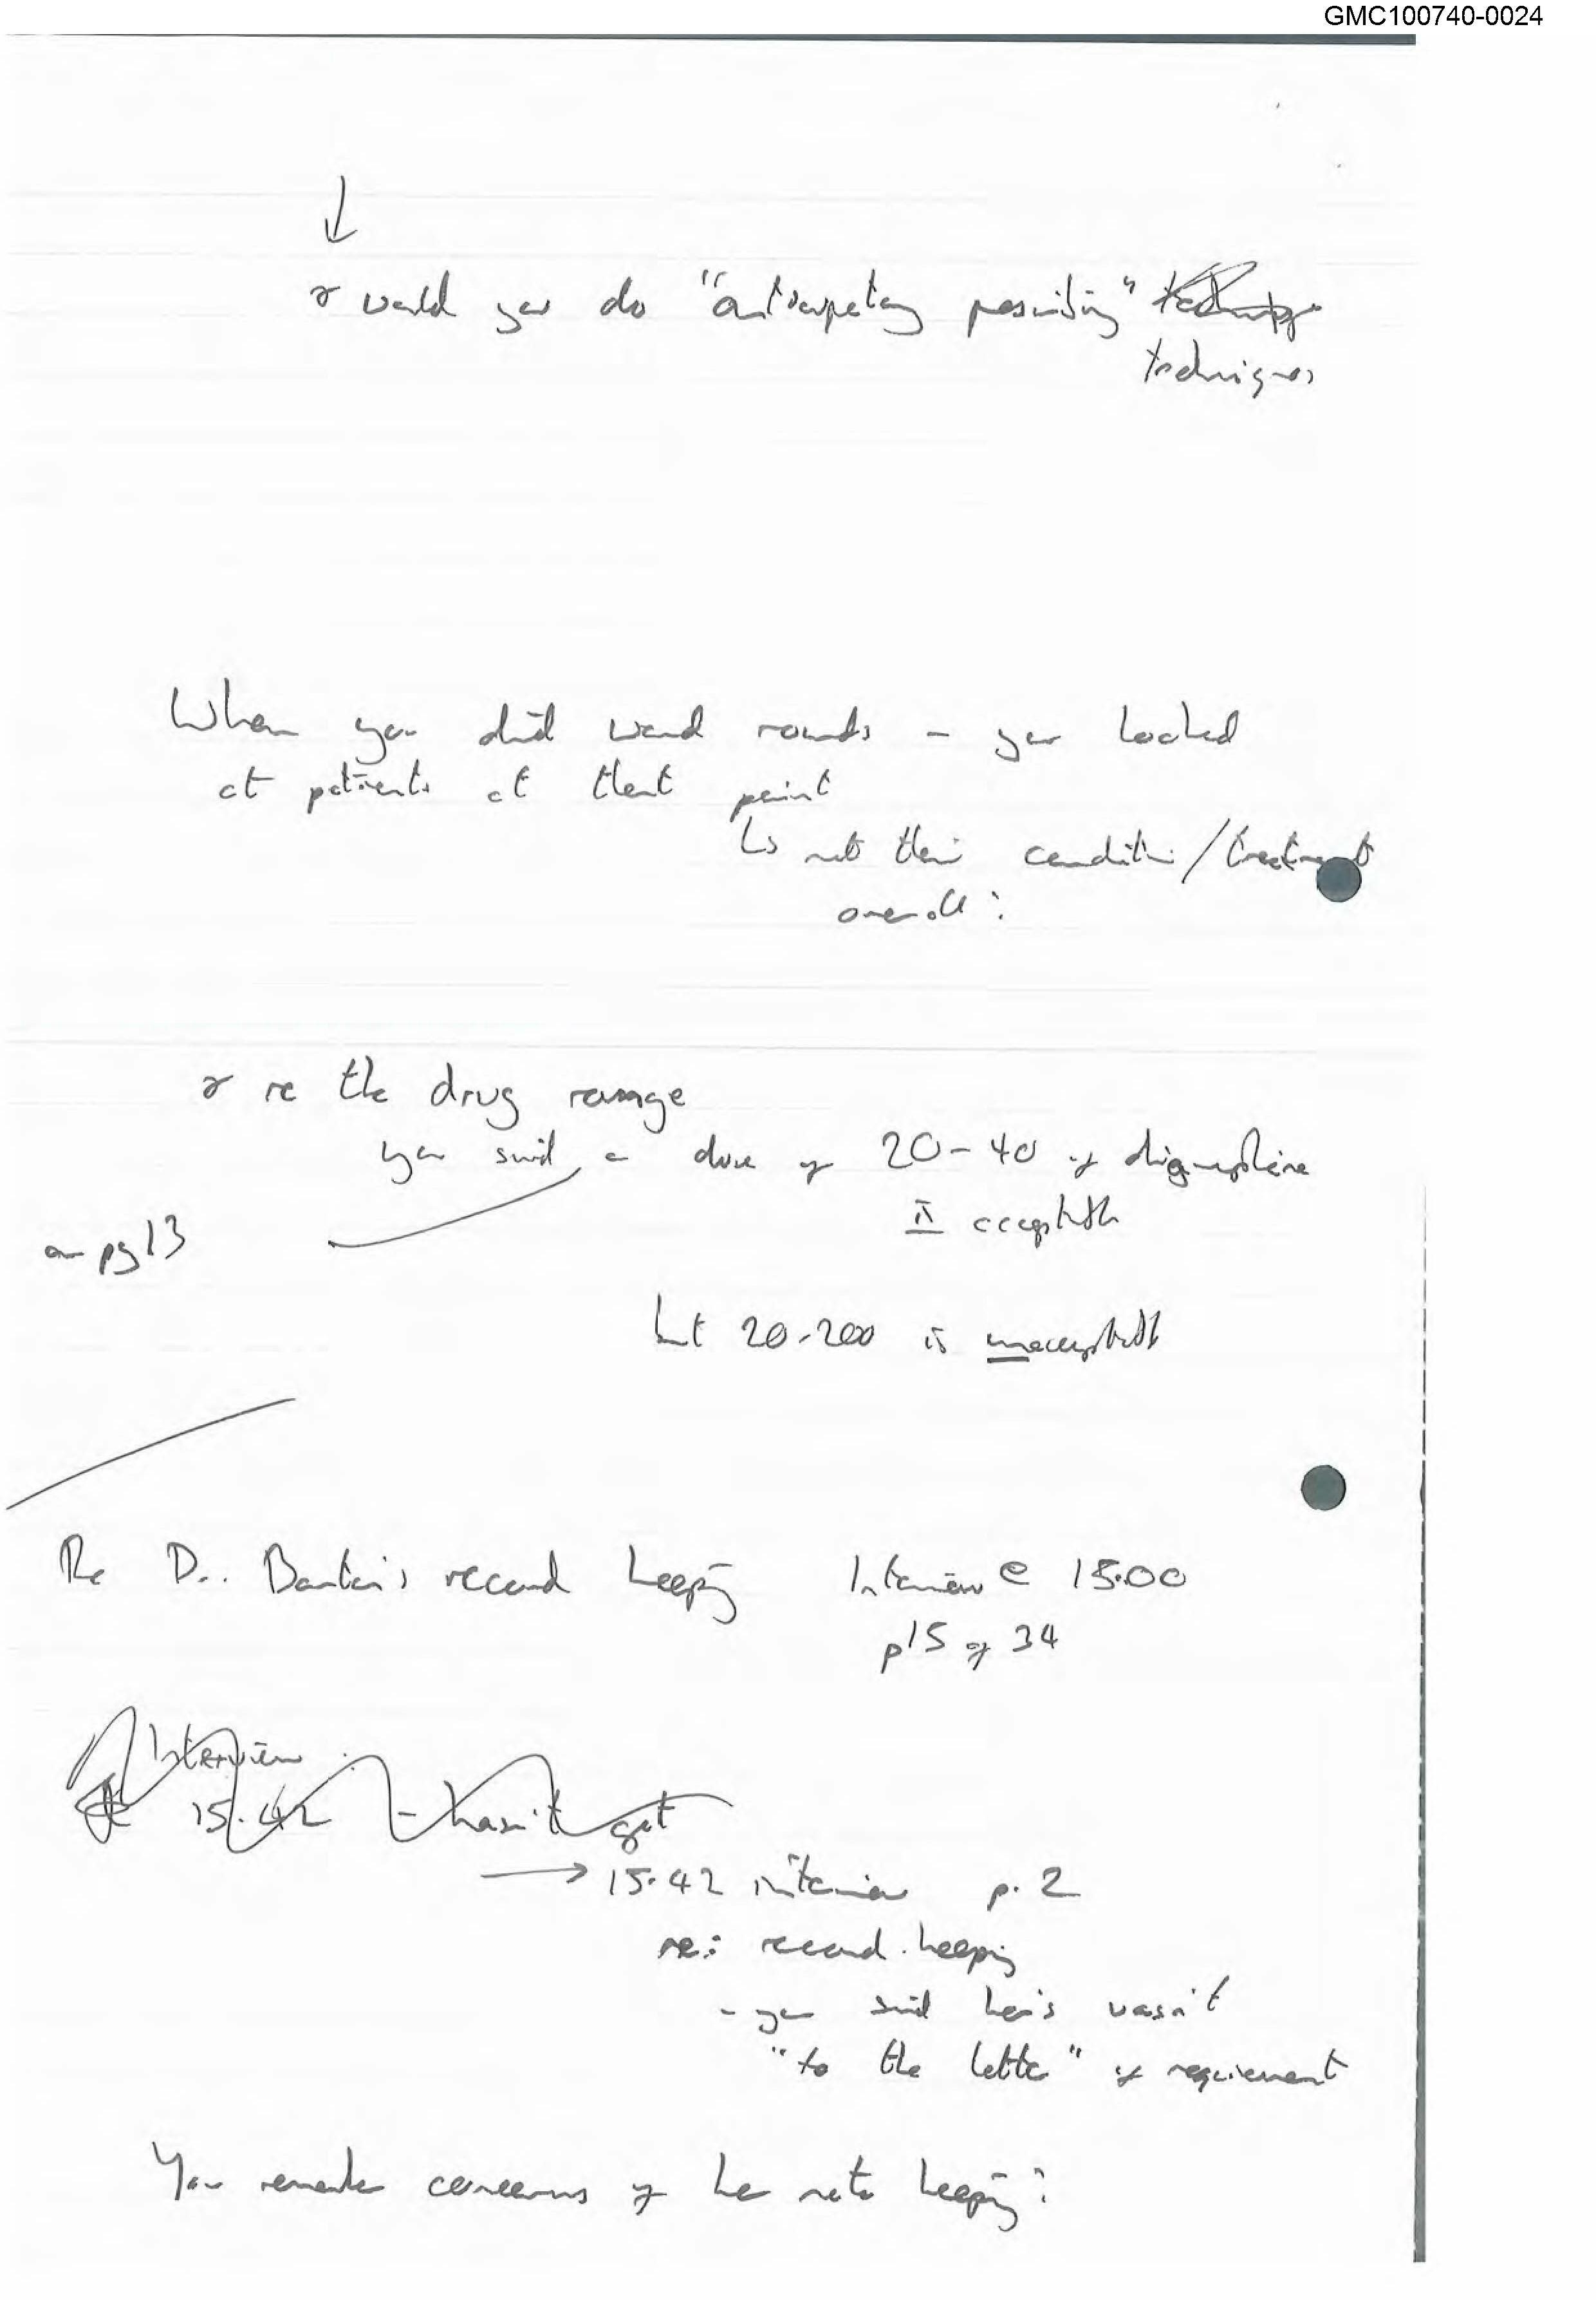 GMC100740-0024
↓
& would you do "anticipatory prescribing"
techniques
When you did ward rounds - you looked
at patients at that point
↳ not their condition/treatment
overall?
& re the drug range
you said a dose of 20-40 of diamorphine
is acceptable
on pg 13
but 20-200 is unacceptable
Re Dr. Barton's record keeping Interview @ 15.00
p15 of 34
Interview
15.42 - hasn't got
→ 15.42 interview p. 2
re: record keeping
- you said hers wasn't
"to the letter" of requirement
You remember concerns of her note keeping?